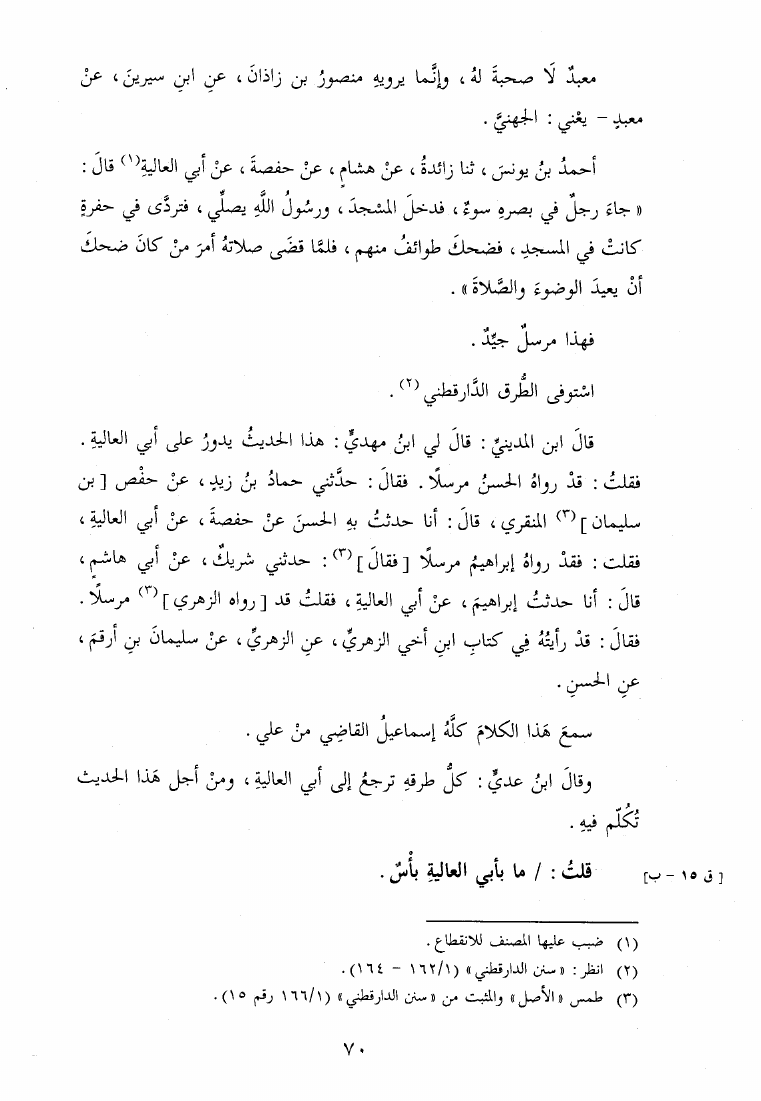 معبدٌ لَا صحبةَ لهُ ، وإنَّما يرويهِ منصورُ بن زاذانَ ، عنِ ابنِ سيرينَ ، عنْ
معبدٍ – يعْني : الجهنيَّ .
أحمدُ بنُ يونسَ ، ثنا زائدةُ ، عنْ هشامٍ ، عنْ حفصةَ ، عنْ أبي العاليةِ(١) قالَ :
« جاءَ رجلٌ في بصرهِ سوءٌ ، فدخلَ المسْجدَ ، ورسُولُ اللَّهِ يصلِّي ، فتردَّى في حفرةٍ
كانتْ في المسجدِ ، فضحكَ طوائفُ منهم ، فلمَّا قضَى صلاتهُ أمرَ منْ كانَ ضحكَ
أنْ يعيدَ الوضوءَ والصَّلاةَ » .
فهذا مرسلٌ جيِّدٌ .
اسْتوفى الطُّرق الدَّارقطني(٢) .
قالَ ابن المدينيِّ : قالَ لي ابنُ مهديٍّ : هذا الحديثُ يدورُ على أبي العاليةِ .
فقلتُ : قدْ رواهُ الحسنُ مرسلًا . فقالَ : حدَّثني حمادُ بنُ زيدٍ ، عنْ حفْص [ بن
سليمان ](٣) المنقري ، قالَ : أنا حدثتُ بهِ الحسنَ عنْ حفصةَ ، عنْ أبي العاليةِ ،
فقلت : فقدْ رواهُ إبراهيمُ مرسلًا [ فقالَ ](٣) : حدثني شريكٌ ، عنْ أبي هاشمٍ ،
قالَ : أنا حدثتُ إبراهيمَ ، عنْ أبي العاليةِ ، فقلتُ قد [ رواه الزهري ](٣) مرسلًا .
فقالَ : قدْ رأيتُهُ فِي كتابِ ابنِ أخي الزهريِّ ، عنِ الزهريِّ ، عنْ سليمانَ بنِ أرقمَ ،
عنِ الحسنِ .
سمعَ هَذا الكلامَ كلَّهُ إسماعيلُ القاضِي منْ علي .
وقالَ ابنُ عديٍّ : كلُّ طرقهِ ترجعُ إلى أبي العاليةِ ، ومنْ أجل هَذا الحديث
تُكُلِّم فيهِ .
قلتُ : / ما بأبي العاليةِ بأْسٌ .
[ ق ١٥ – ب ]
(١) ضبب عليها المصنف للانقطاع .
(٢) انظر : « سنن الدارقطني » (١٦٢/١ – ١٦٤) .
(٣) طمس « الأصل » والمثبت من « سنن الدارقطني » (١٦٦/١ رقم ١٥) .
٧٠